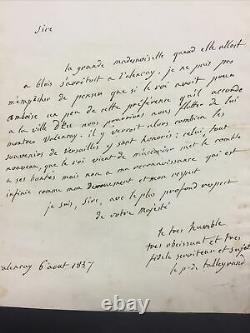 Sire
la grande mademoiselle quand elle alloit
a blois s'arretoit a valençay. je ne puis pas
m'empêcher de penser que si le roi avoit pour
amboise un peu de cette préférence qu'il accorde
a la ville d'Eu nous pourrions nous flatter de lui
montrer Valençay. il y verroit alors combien les
souvenirs de Versailles y sont honorés: celui, tout
nouveau, que le roi vient de m'accorder met le comble
a ses bontés mais non a ma reconnaissance qui est
infinie comme mon dévouement et mon respect
je suis, Sire, avec le plus profond respect
de votre Majesté
le très humble
très obéissant et très
fidele serviteur et sujet
le p. de talleyrand
valençay 6 aout 1837